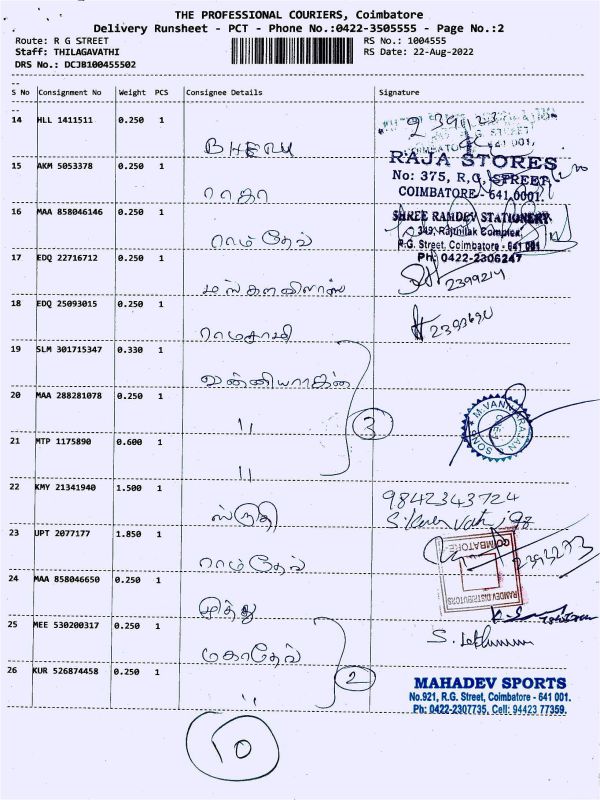 THE PROFESSIONAL COURIERS, Coimbatore
Delivery Runsheet - PCT - Phone No.:0422-3505555 - Page No.:2
Route: R G STREET
RS No.: 1004555
Staff: THILAGAVATHI
RS Date: 22-Aug-2022
DRS No.: DCJB100455502
S No Consignment No Weight PCS Consignee Details Signature
14 HLL 1411511 0.250 1
BHERU
R.G STREET
COIMBATORE 641 001.
15 AKM 5053378 0.250 1
ராதா
RAJA STORES
No: 375, R.G. STREET,
COIMBATORE - 641 0001.
16 MAA 858046146 0.250 1
ராம்தேவ்
SHREE RAMDEV STATIONERY
349, Rajthilak Complex,
R.G. Street, Coimbatore - 641 001
Ph: 0422-2306247
17 EDQ 22716712 0.250 1
மங்களவிலாஸ்
2399214
18 EDQ 25093015 0.250 1
ராமசாமி
19 SLM 301715347 0.330 1
வன்னியராஜன்
20 MAA 288281078 0.250 1
" 3
21 MTP 1175890 0.600 1
"
22 KMY 21341940 1.500 1
ஸ்ருதி
9842343724
23 UPT 2077177 1.850 1
ராம்தேவ்
COIMBATORE
RAMDEV DISTRIBUTORS
24 MAA 858046650 0.250 1
முத்து
25 MEE 530200317 0.250 1
மகாதேவ்
26 KUR 526874458 0.250 1
" 2
MAHADEV SPORTS
No.921, R.G. Street, Coimbatore - 641 001.
Ph: 0422-2307735, Cell: 94423 77359.
10